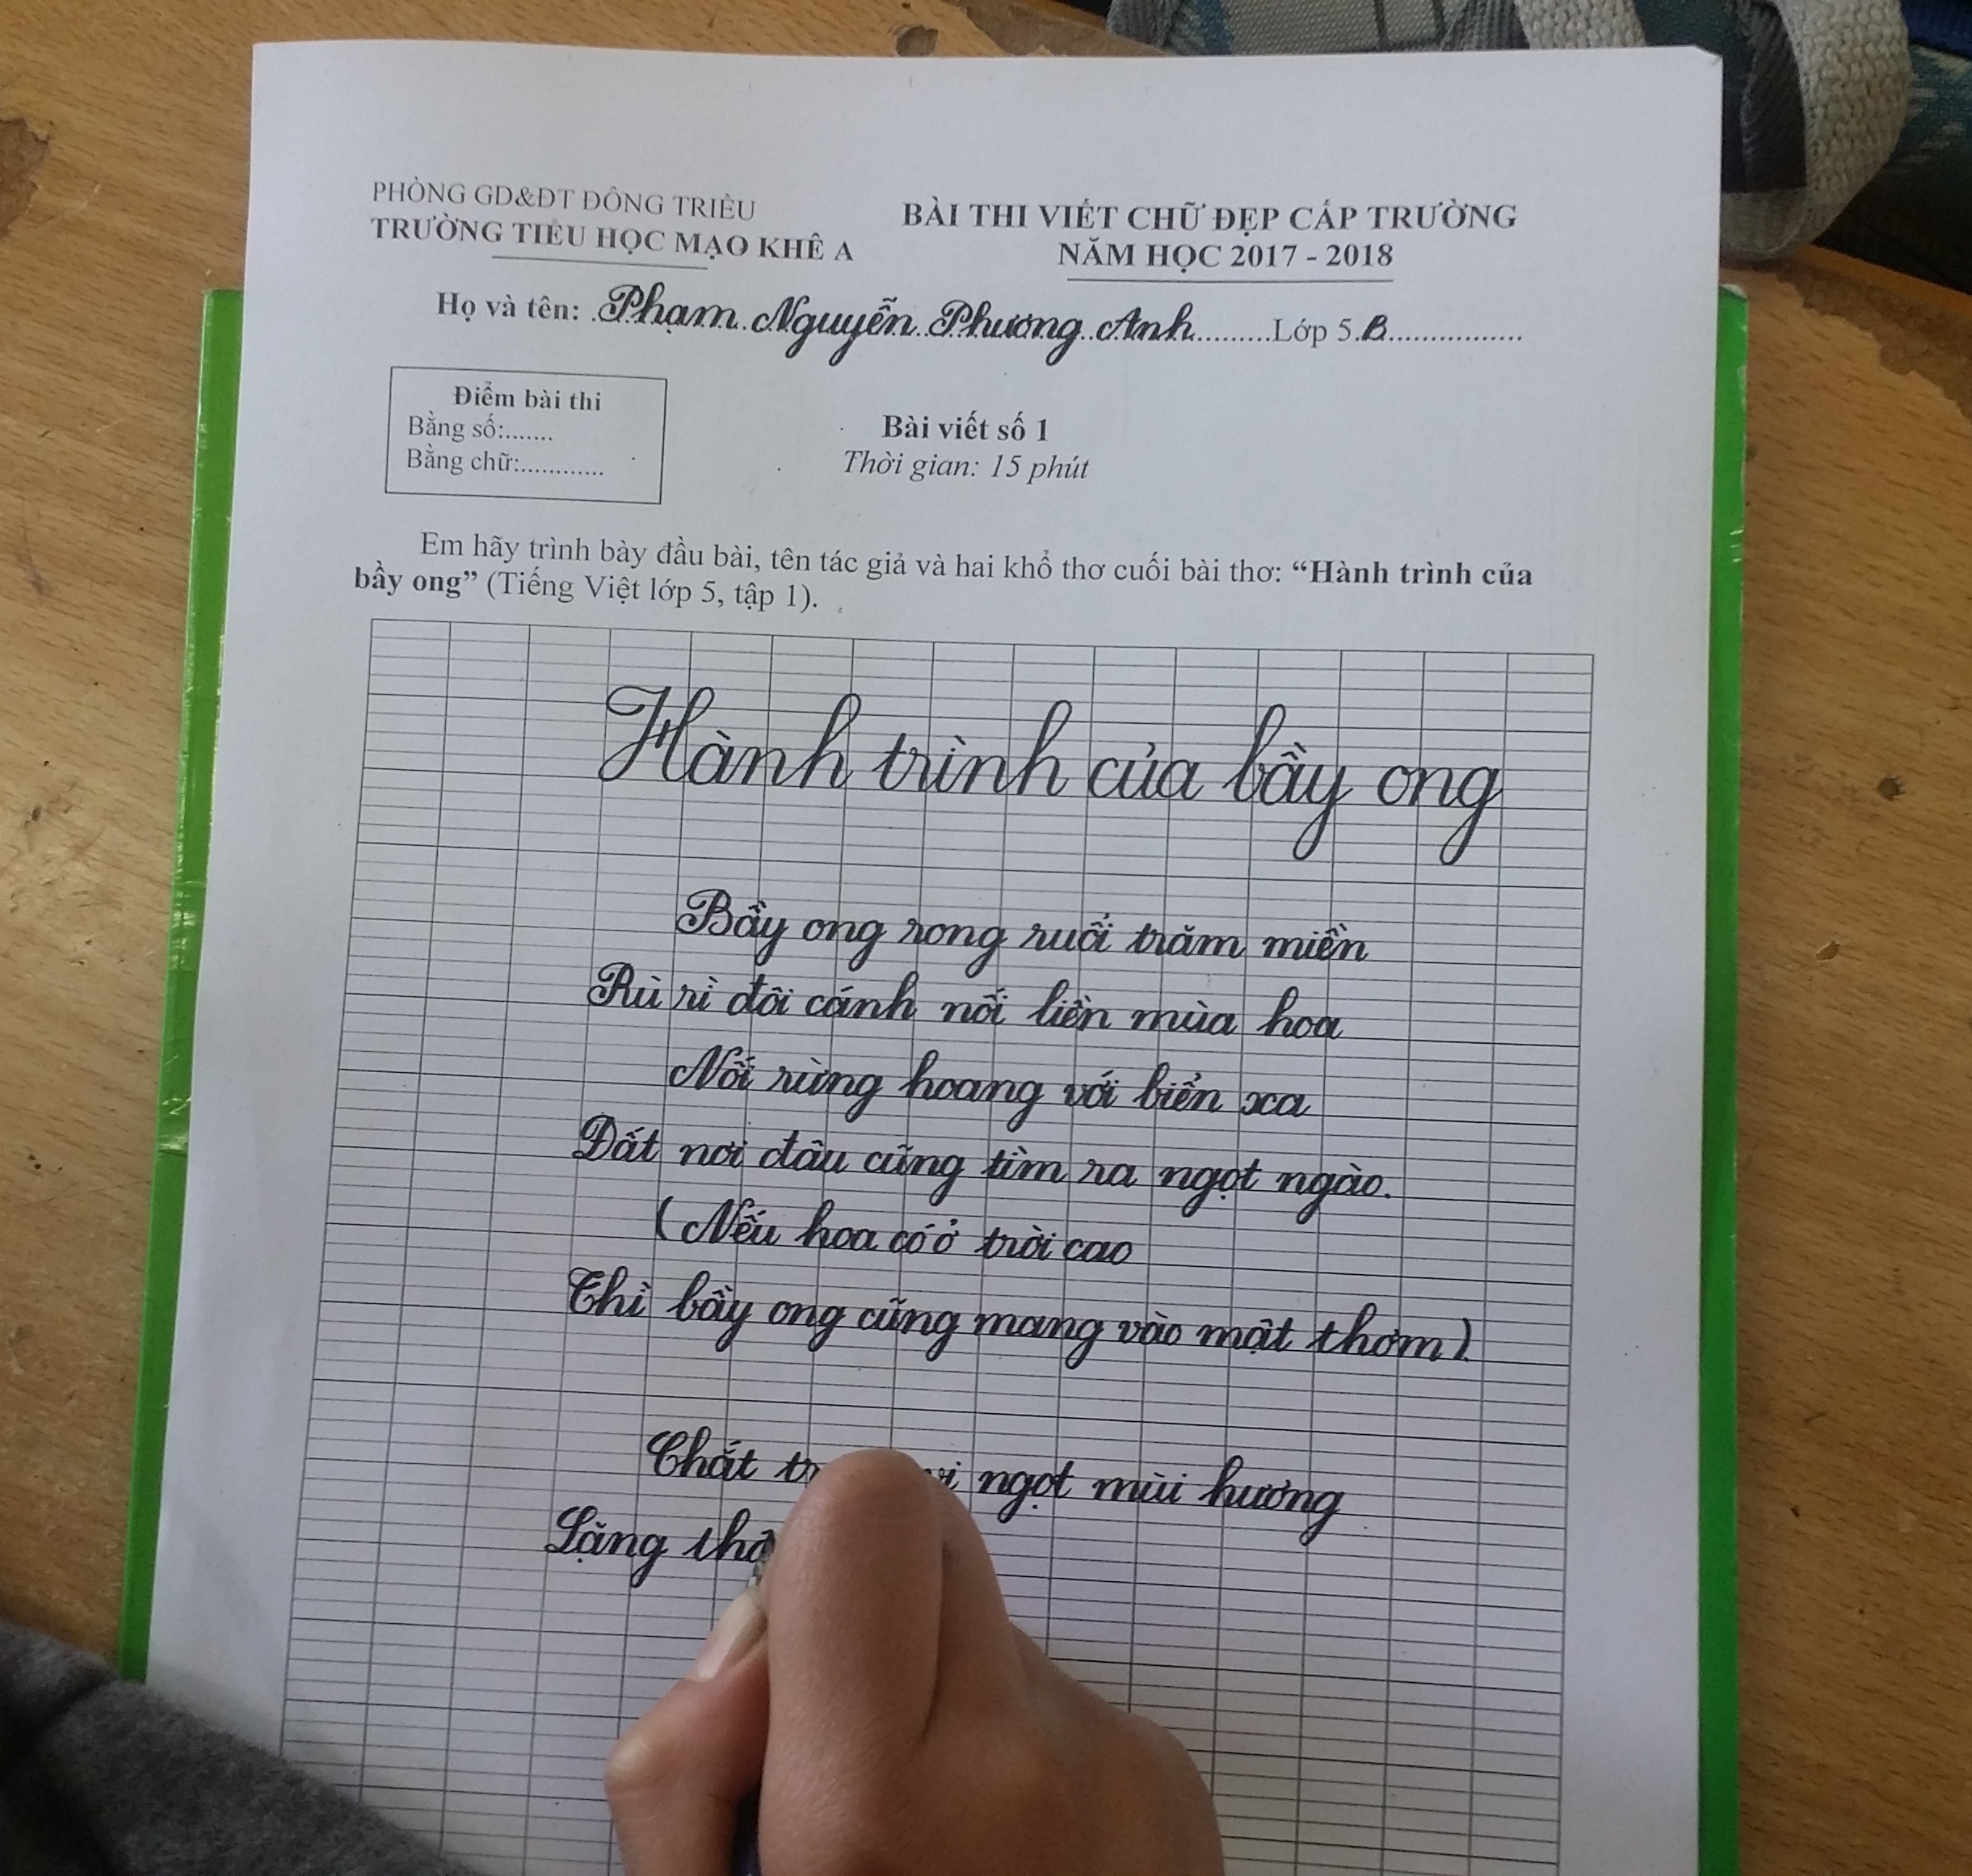 PHÒNG GD&ĐT ĐÔNG TRIỀU
TRƯỜNG TIỂU HỌC MẠO KHÊ A
BÀI THI VIẾT CHỮ ĐẸP CẤP TRƯỜNG
NĂM HỌC 2017 - 2018
Họ và tên: Phạm Nguyễn Phương Anh Lớp 5 B
Điểm bài thi
Bằng số:.......
Bằng chữ:............
Bài viết số 1
Thời gian: 15 phút
Em hãy trình bày đầu bài, tên tác giả và hai khổ thơ cuối bài thơ: “Hành trình của
bầy ong” (Tiếng Việt lớp 5, tập 1).
Hành trình của bầy ong
Bầy ong rong ruổi trăm miền
Rù rì đôi cánh nối liền mùa hoa
Nối rừng hoang với biển xa
Đất nơi đâu cũng tìm ra ngọt ngào.
(Nếu hoa có ở trời cao
Thì bầy ong cũng mang vào mật thơm)
Chắt vị ngọt mùi hương
Lặng